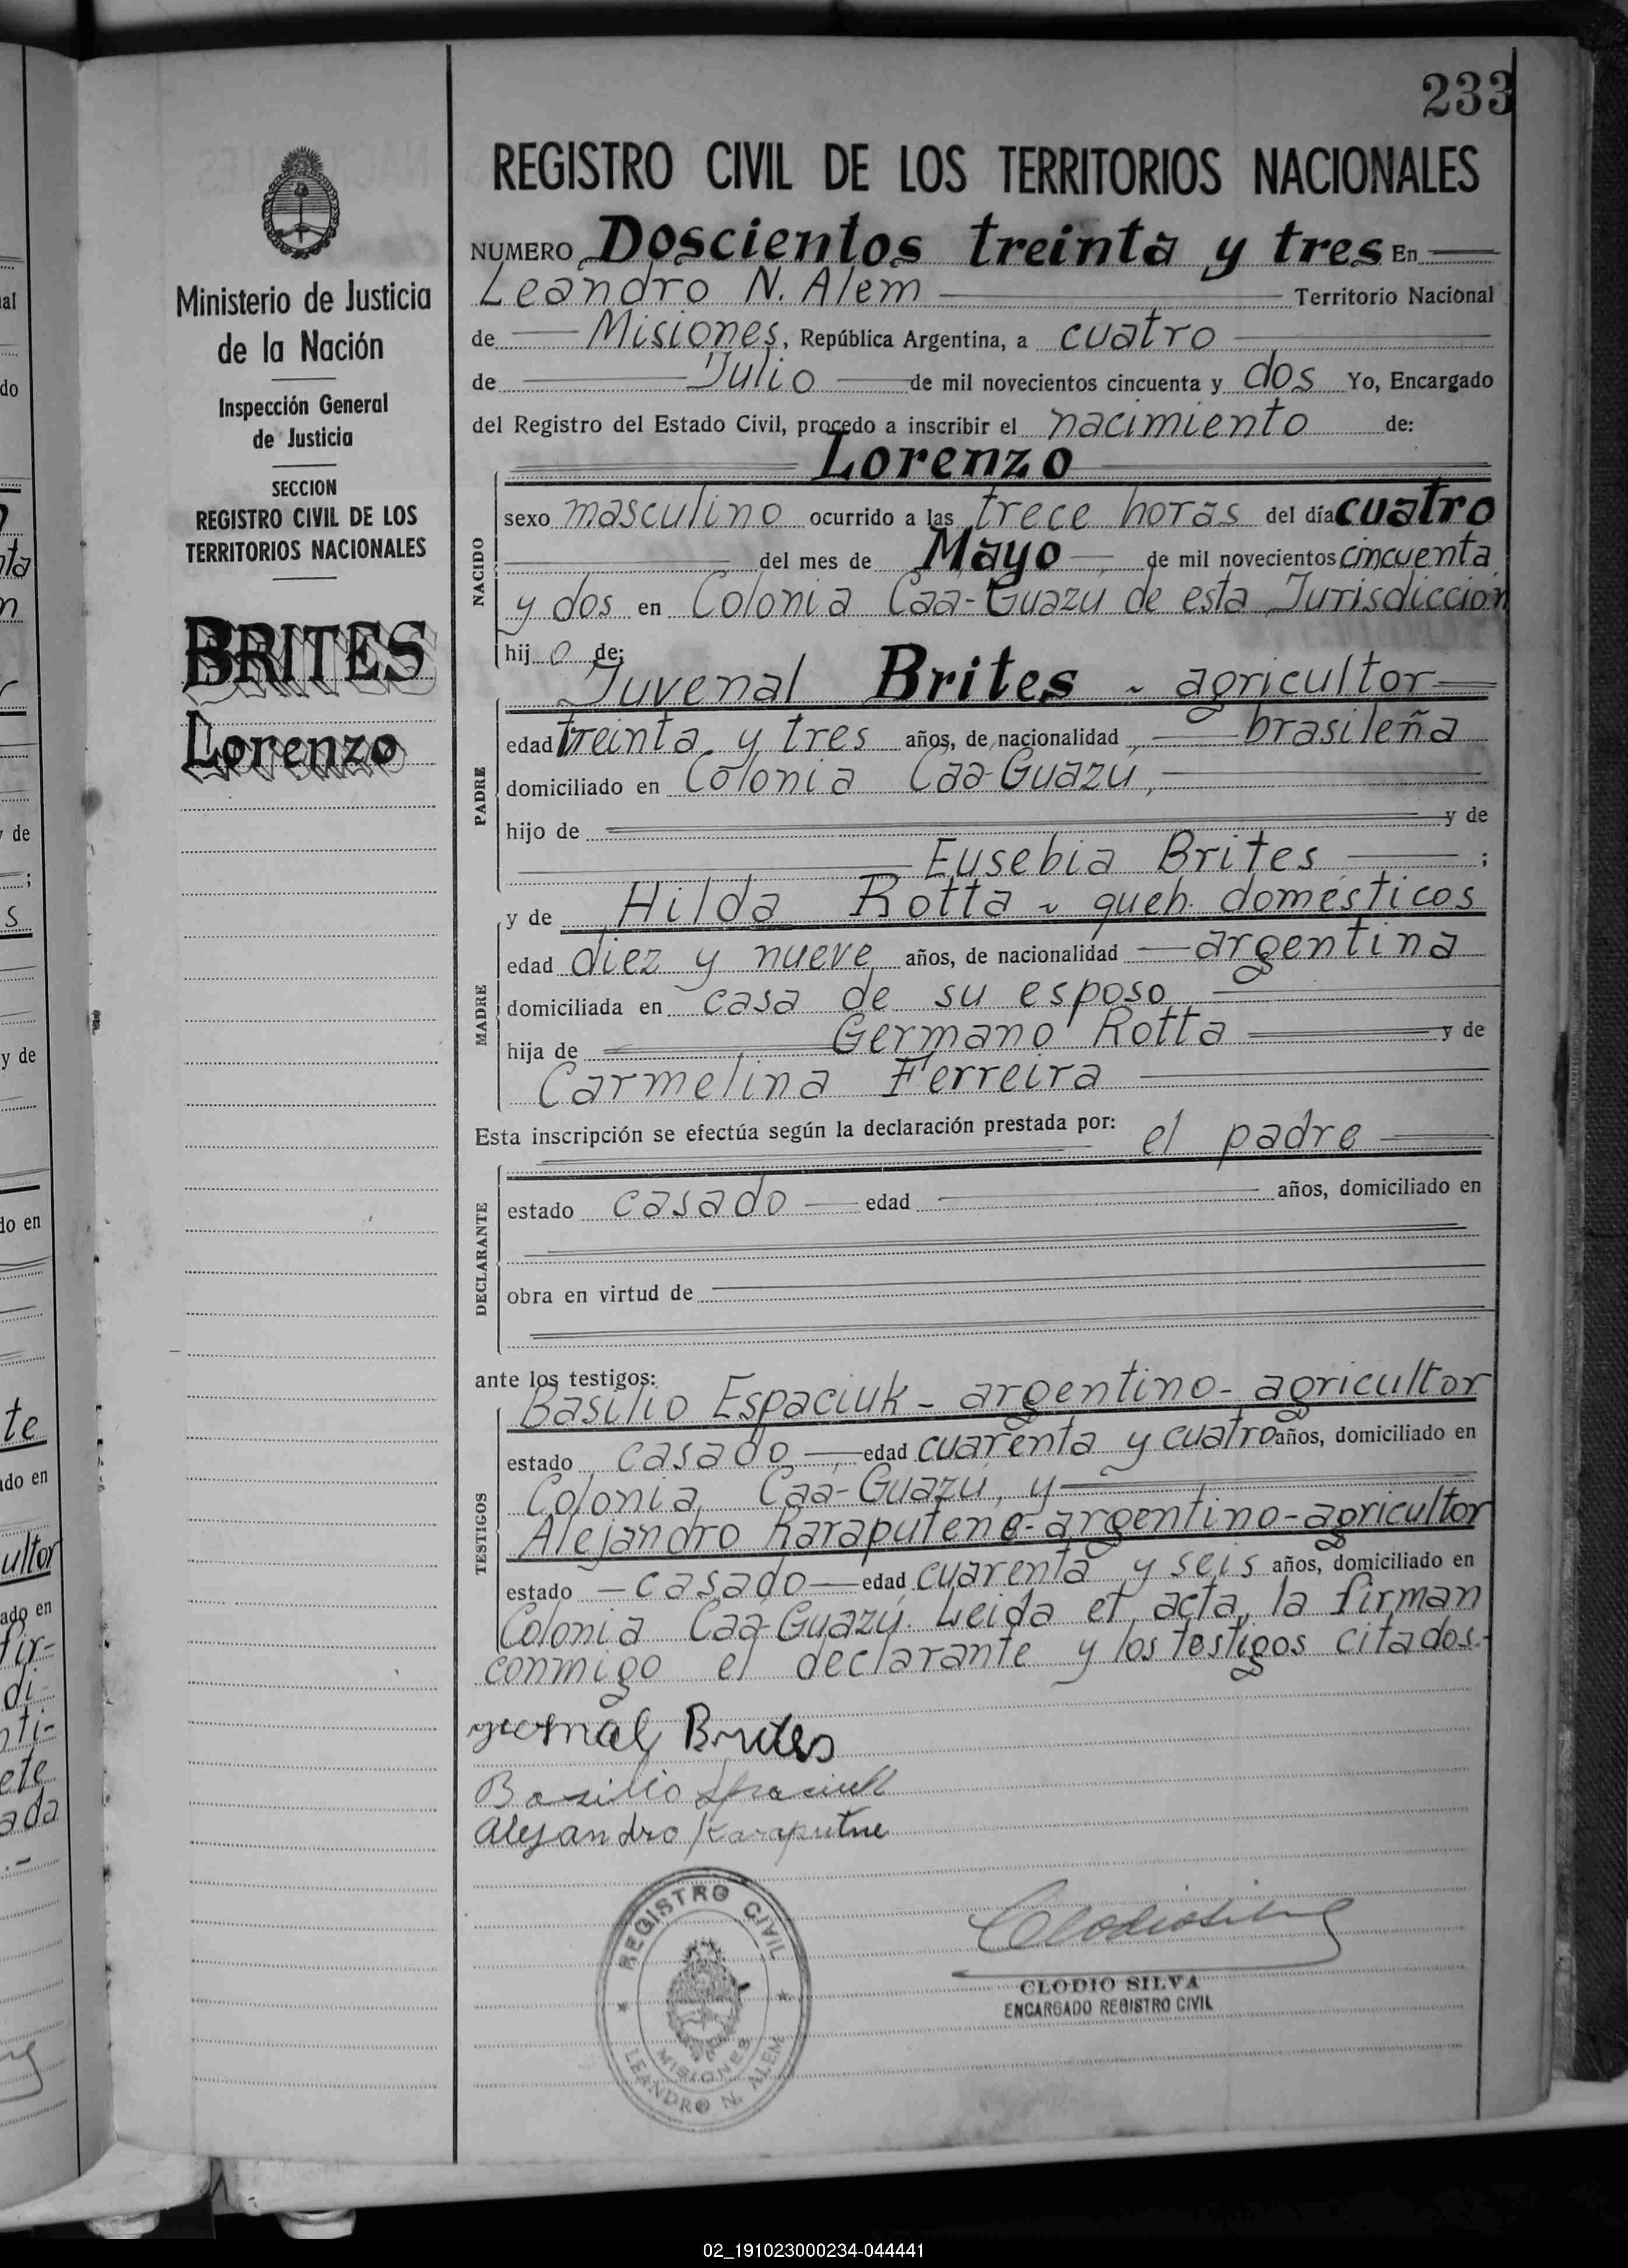 233
REGISTRO CIVIL DE LOS TERRITORIOS NACIONALES
NUMERO Doscientos treinta y tres En
Leandro N. Alem Territorio Nacional
de Misiones, República Argentina, a cuatro
de Julio de mil novecientos cincuenta y dos Yo, Encargado
del Registro del Estado Civil, procedo a inscribir el nacimiento de:
Lorenzo
NACIDO
sexo masculino ocurrido a las trece horas del día cuatro
del mes de Mayo de mil novecientos cincuenta
y dos en Colonia Caa-Guazu de esta Jurisdicción
hijo de:
Juvenal Brites - agricultor
PADRE
edad treinta y tres años, de nacionalidad brasileña
domiciliado en Colonia Caa-Guazú,
hijo de y de
Eusebia Brites ;
y de Hilda Rotta - queh. domésticos
MADRE
edad diez y nueve años, de nacionalidad argentina
domiciliada en casa de su esposo
hija de Germano Rotta y de
Carmelina Ferreira
Esta inscripción se efectúa según la declaración prestada por: el padre
DECLARANTE
estado casado edad años, domiciliado en
obra en virtud de
ante los testigos:
Basilio Espaciuk - argentino - agricultor
TESTIGOS
estado casado edad cuarenta y cuatro años, domiciliado en
Colonia Caá-Guazú, y
Alejandro Karaputene - argentino - agricultor
estado casado edad cuarenta y seis años, domiciliado en
Colonia Caá-Guazú. Leida el acta, la firman
conmigo el declarante y los testigos citados.-
Brites
Basilio Spaciuk
Alejandro Karaputne
REGISTRO CIVIL
MISIONES
LEANDRO N. ALEM
Clodio Silva
CLODIO SILVA
ENCARGADO REGISTRO CIVIL
Ministerio de Justicia
de la Nación
Inspección General
de Justicia
SECCION
REGISTRO CIVIL DE LOS
TERRITORIOS NACIONALES
BRITES
Lorenzo
al
do
de
;
s
y de
do en
te
ado en
ultor
ado en
fir-
di-
nti-
ete
ada
.-
02_191023000234-044441